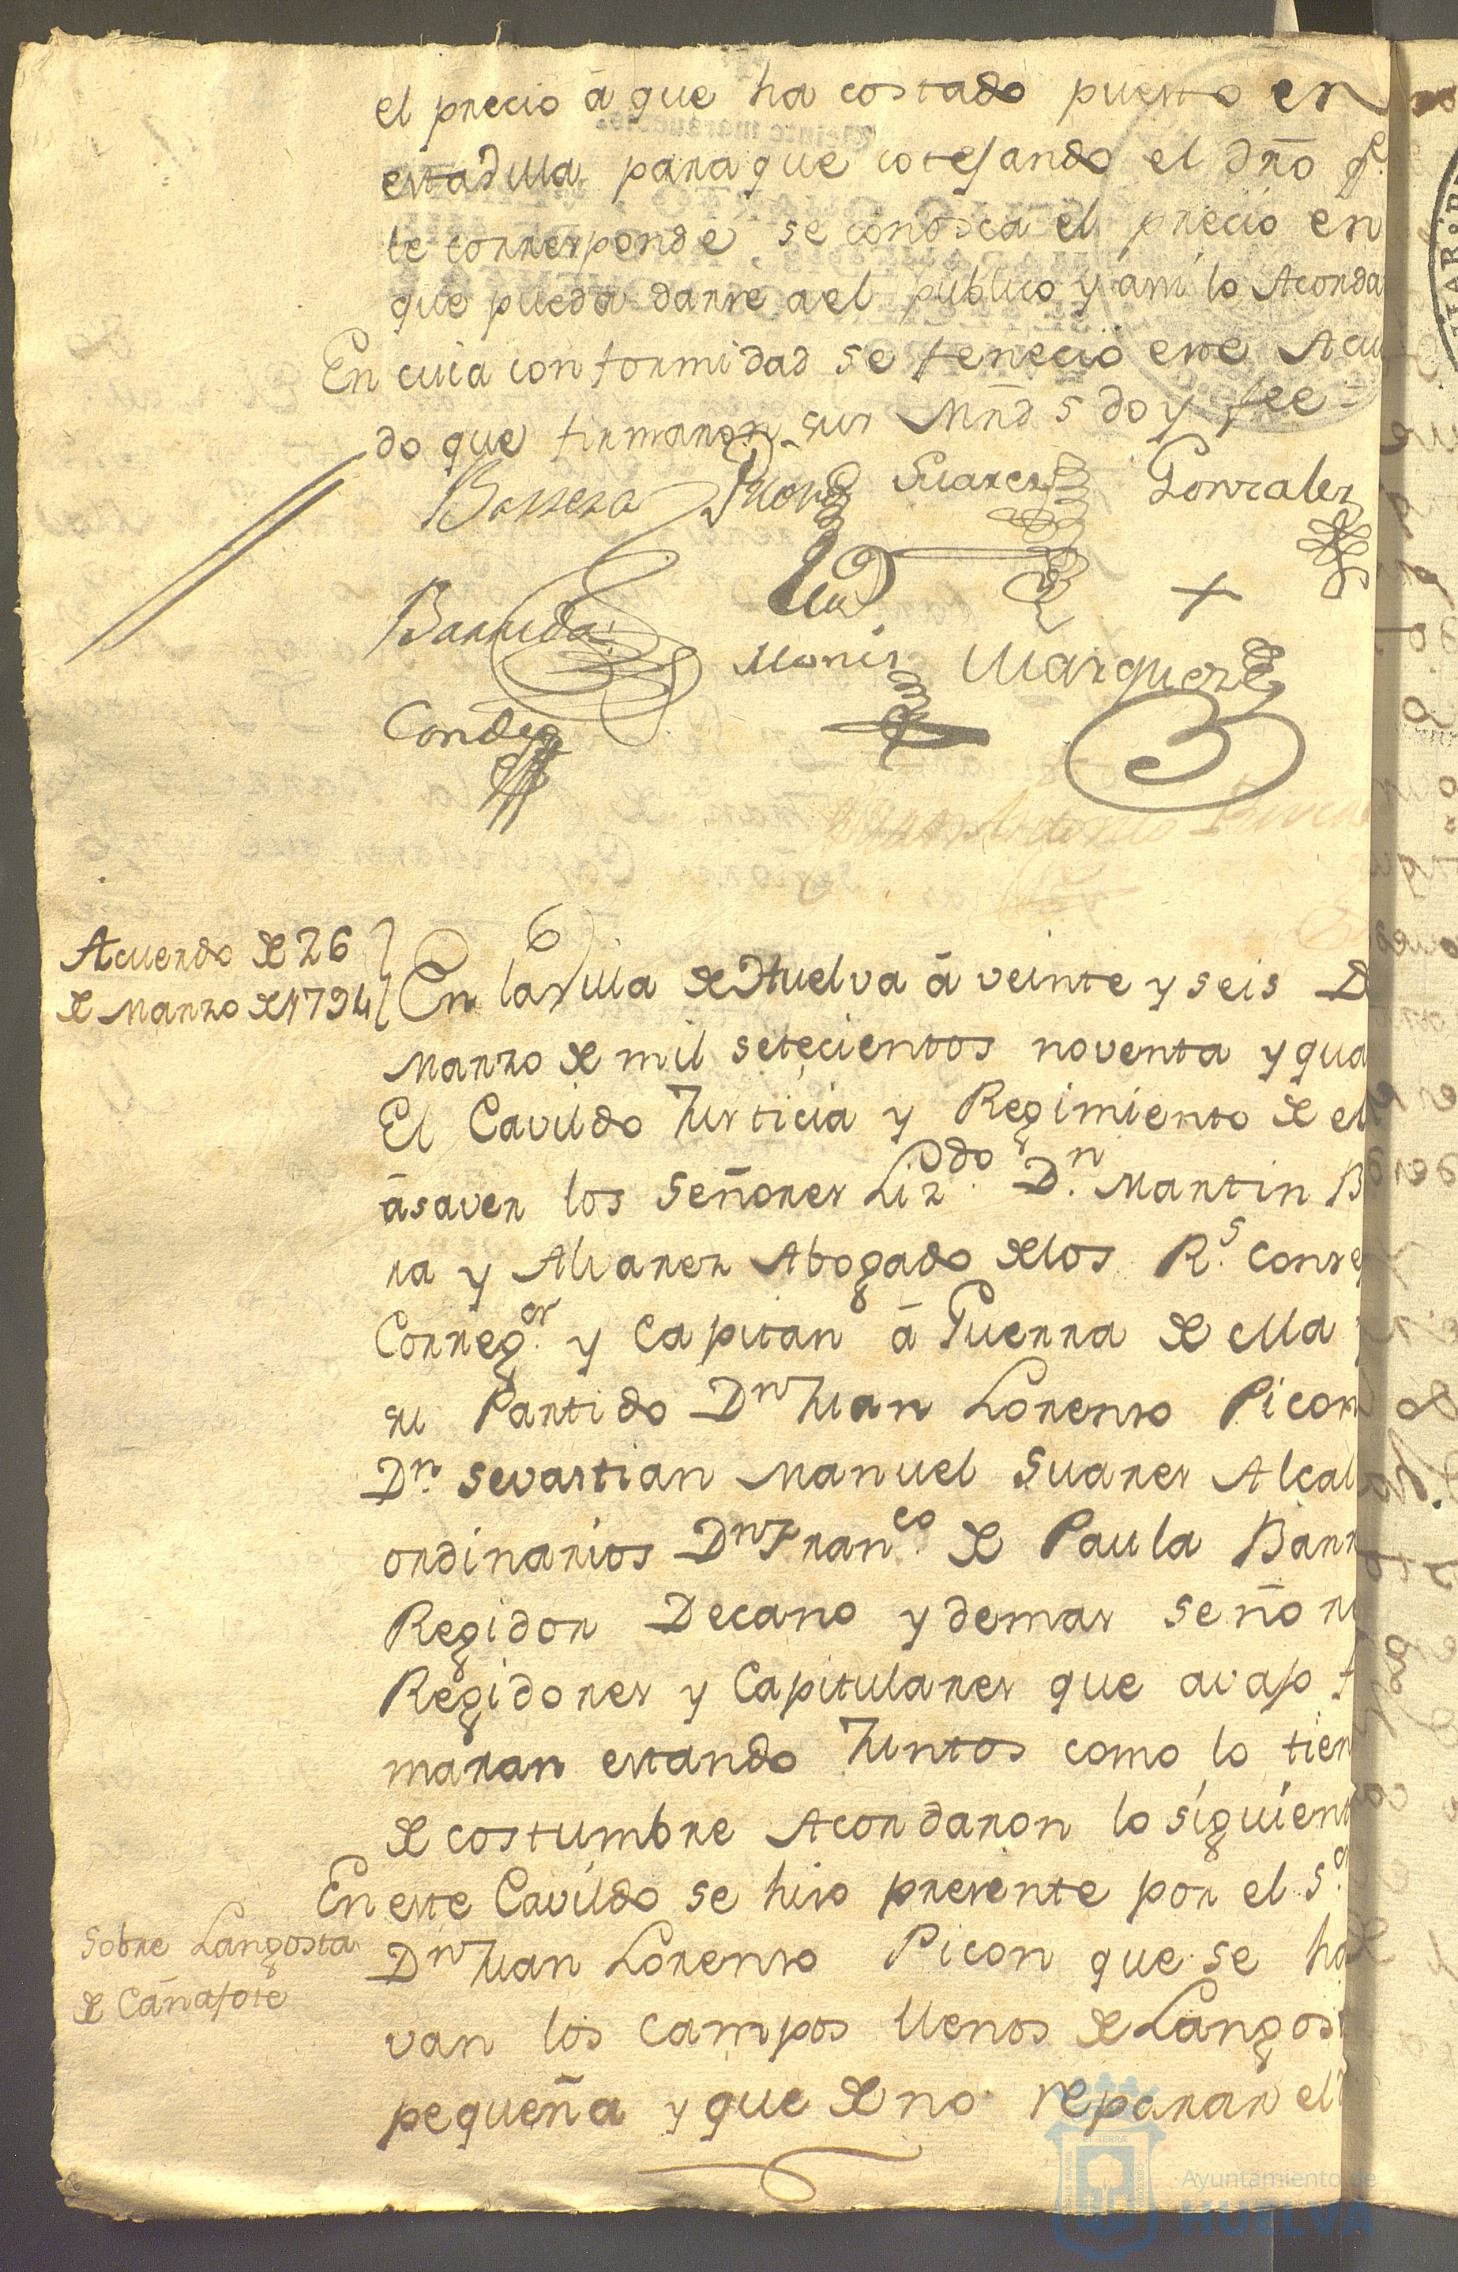 el precio â que ha costado puesto en
esta Villa para que cotejando el dr̃o q.e
le corresponde se conosca el precio en
que pueda darse ael publico y ási lo Acorda
En cuia conformidad se feneció este Acu
do que firmaron sus Mr̃ds doy fee =
Barrera Picon Suarez Gonzalez
Barreda
Monis Marquez
Conde
Acuerdo de 26
de Marzo de 1794
En la Villa de Huelva â veinte y seis D
Marzo de mil setecientos noventa y qua
El Cavildo Justicia y Regimiento de el
âsaver los Señores Liz.do D.n Martin B
ra y Alvarez Abogado delos R.s Conse
Correg.or y Capitan â Guerra de ella
su Partido D.n Juan Lorenso Picon
D.n Sevastian Manuel Suares Alcal
ordinarios D.n Fran.co de Paula Barr
Regidor Decano y demas Señor
Regidores y Capitulares que avajo f
maran estando Juntos como lo tien
de costumbre Acordaron lo siguient
En este Cavildo se hiso presente por el S.or
Sobre Langosta
de Cañafoté
D.n Juan Lorenso Picon que se ha
van los campos llenos de Langost
pequeña y que de no reparar el
Ayuntamiento de
HUELVA